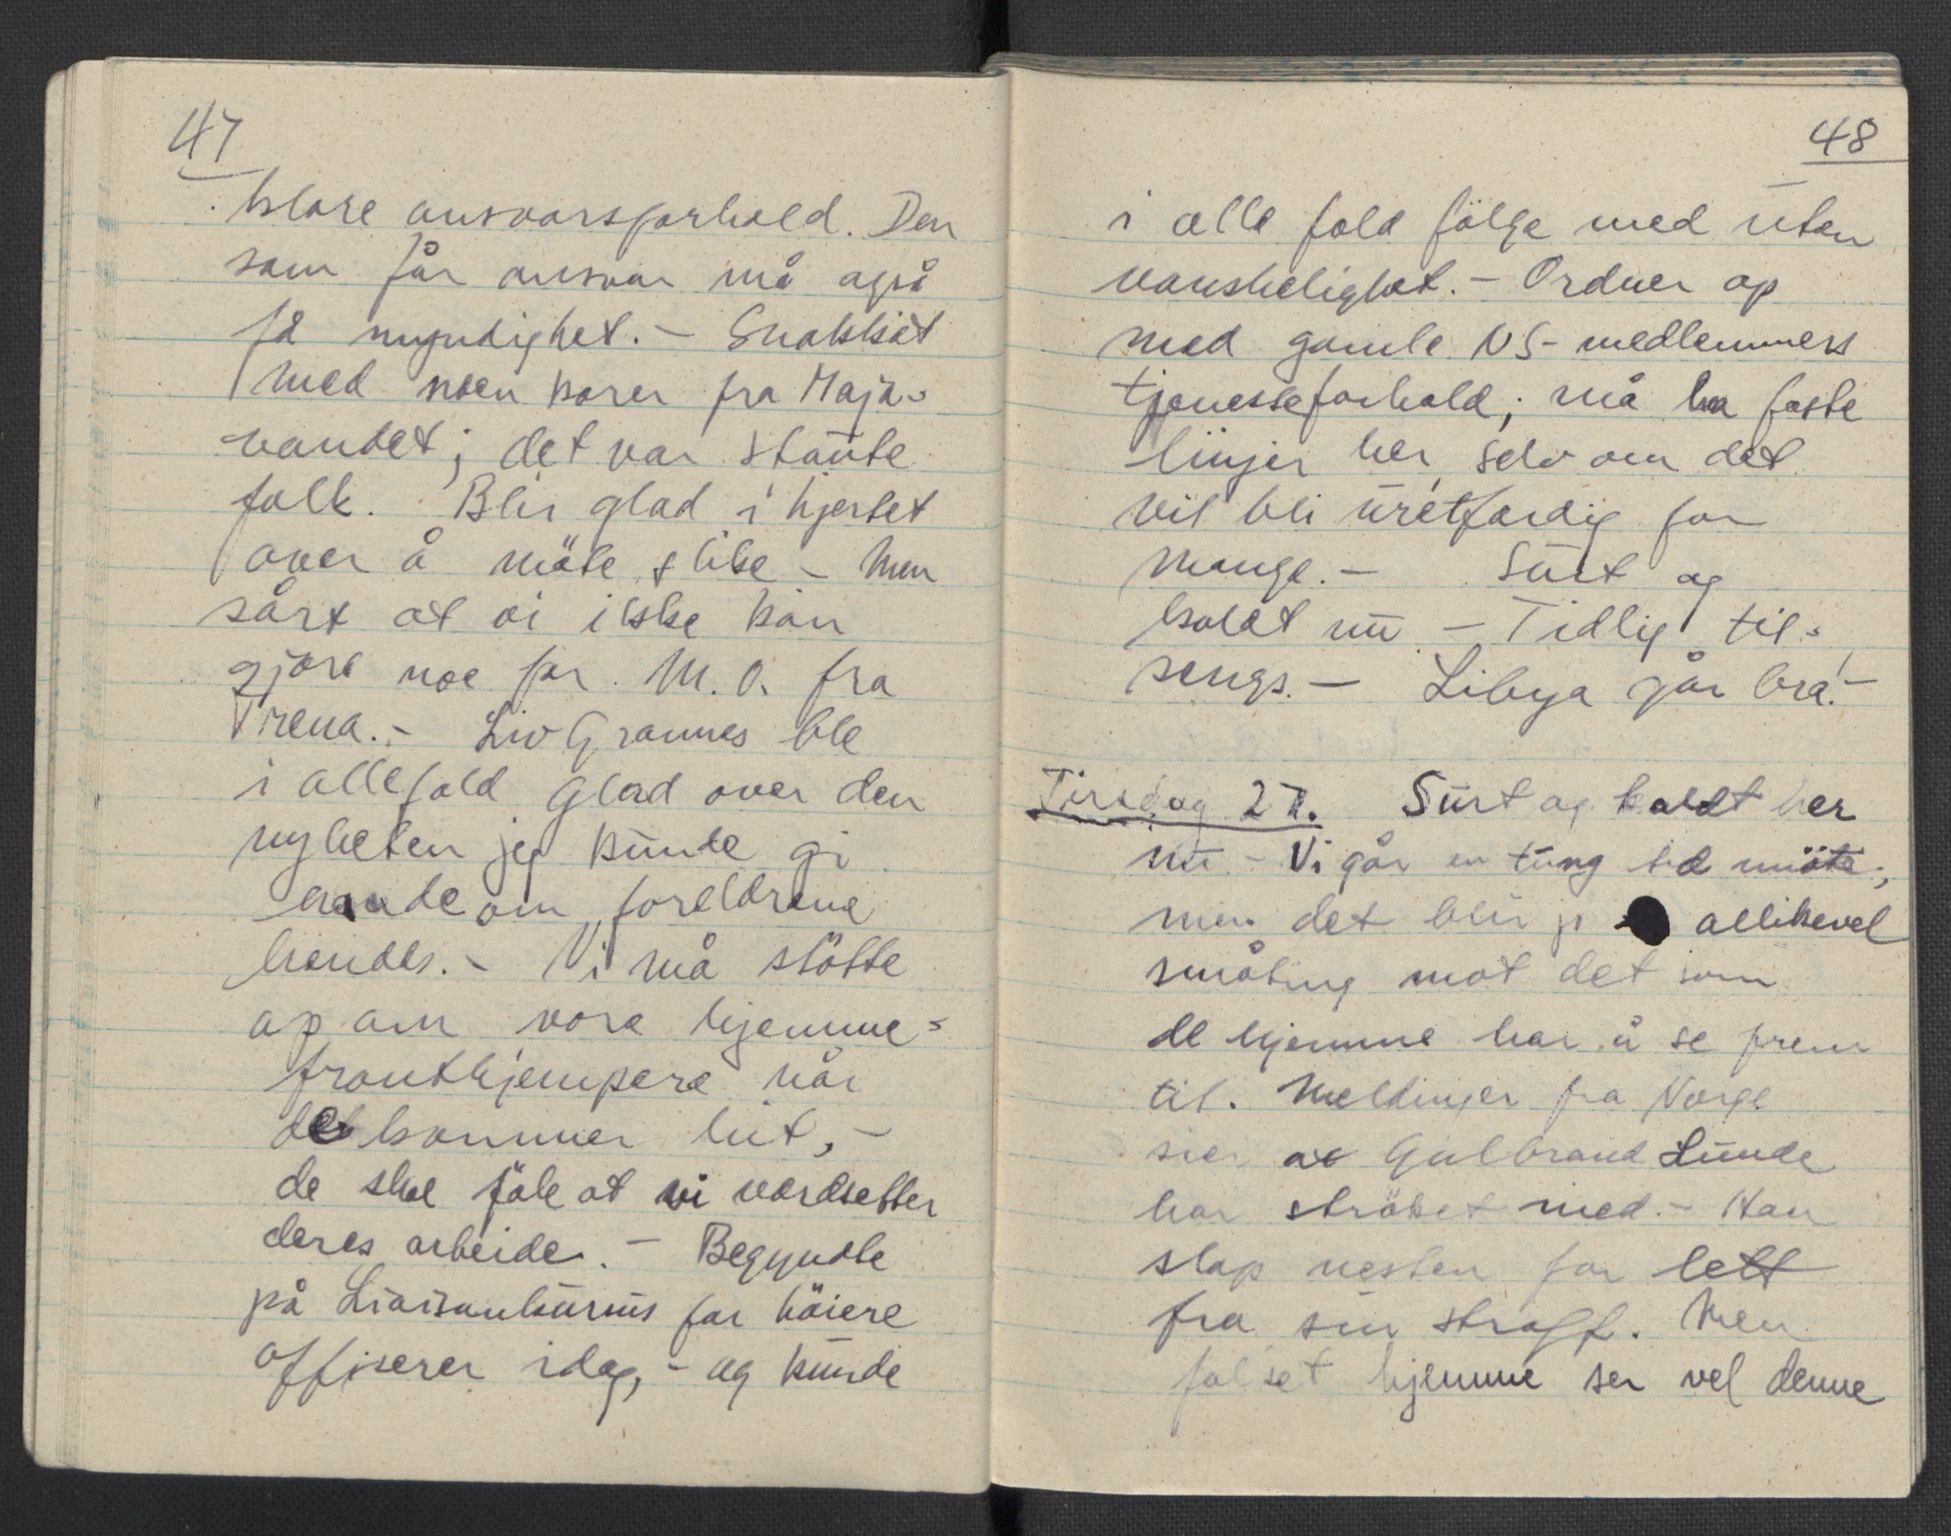 47
klare ansvarsforhold. Den
som får ansvar må også
få myndighet. - Snakket
med noen karer fra Maja-
vandet; det var staute
folk. Blir glad i hjertet
over å møte slike - men
sårt at vi ikke kan
gjøre noe for M.O. fra
Trena. - Liv Grannes ble
i allefald glad over den
nyheten jeg kunde gi
hende om foreldrene
hendes. - Vi må støtte
op om vore hjemme-
frontkjempere når
de kommer hit, -
de skal føle at vi verdsetter
deres arbeide. - Begyndte
på Liaisonkursus for høiere
offiserer idag, - og kunde
48
i alle fald følge med uten
vanskelighet. - Ordner op
med gamle NS-medlemmers
tjenesteforhold; må ha faste
linjer her, selv om det
vil bli uretfærdig for
mange. - Surt og
koldt nu - Tidlig til-
sengs. - Libya går bra! -
Tirsdag 27. Surt og koldt her
nu - Vi går en tung tid møte;
men det blir jo allikevel
småting mot det som
de hjemme har å se frem
til. Meldinger fra Norge
sier at Gulbrand Lunde
har strøket med. - Han
slap nesten for lett
fra sin straff. Men
folket hjemme ser vel denne